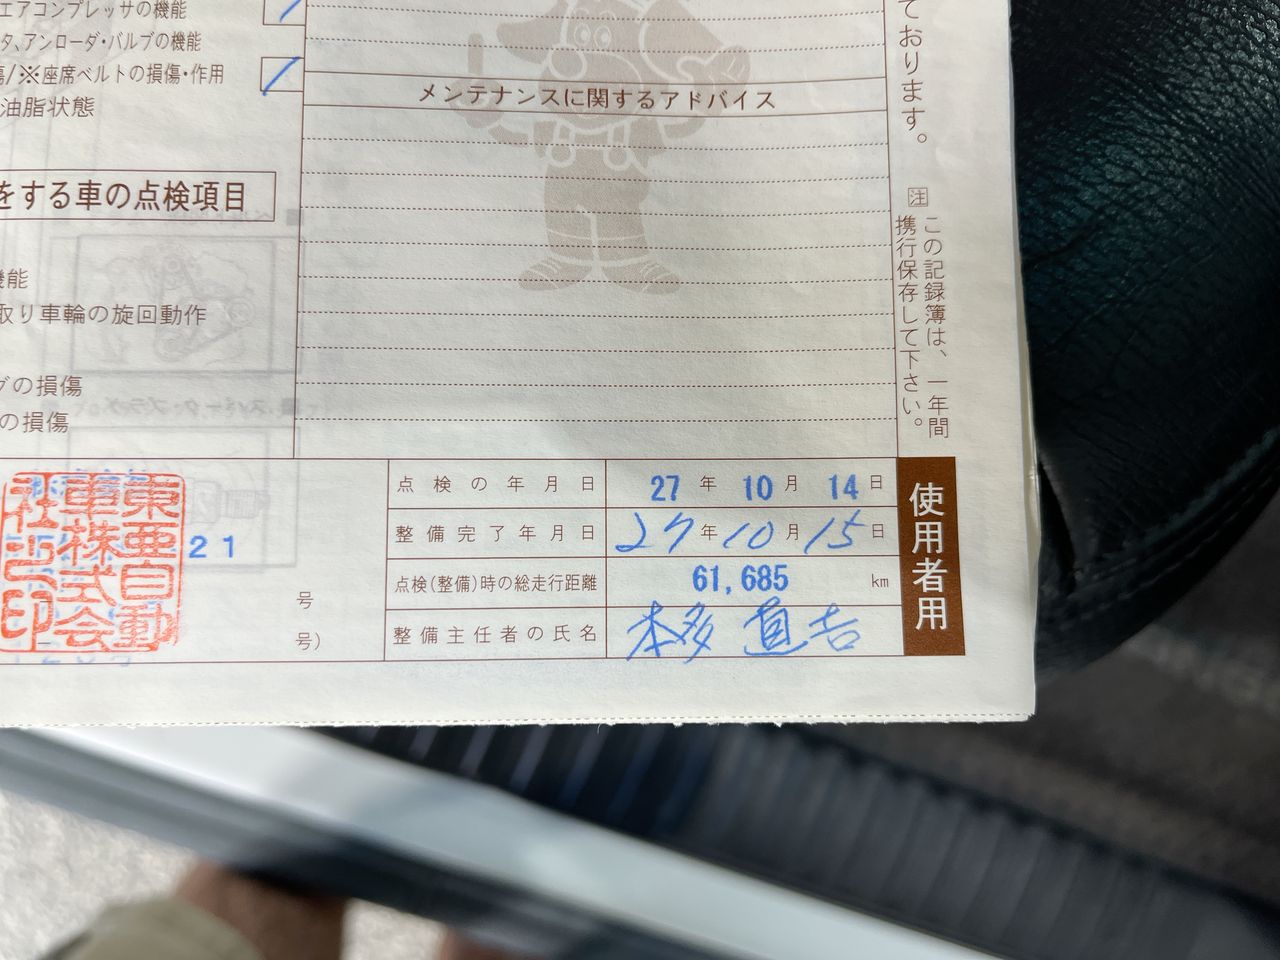 エアコンプレッサの機能
タ、アンローダ・バルブの機能
傷/※座席ベルトの損傷・作用
油脂状態
をする車の点検項目
機能
取り車輪の旋回動作
グの損傷
の損傷
メンテナンスに関するアドバイス
ております。
注 この記録簿は、一年間
携行保存して下さい。
東亜自動
車株式会
社之印
21
号
号)
点検の年月日 27年10月14日
整備完了年月日 27年10月15日
点検(整備)時の総走行距離 61,685 km
整備主任者の氏名 本多 直吉
使用者用